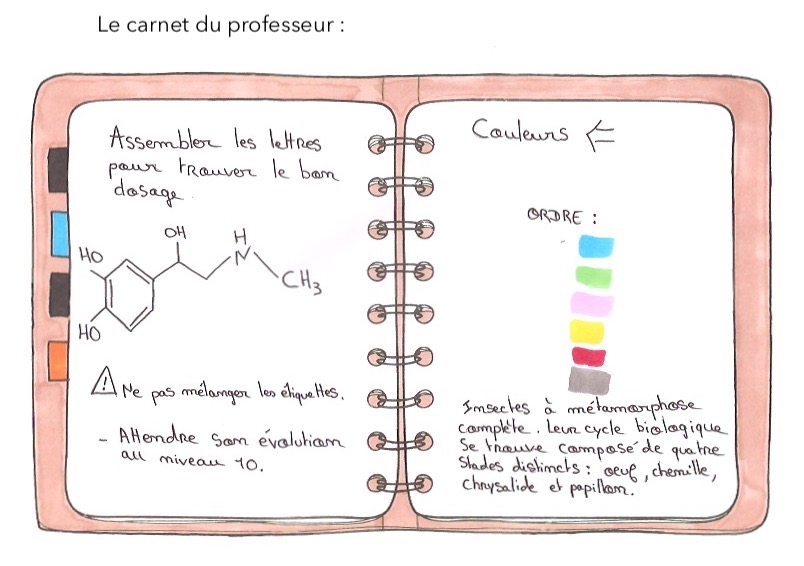 Le carnet du professeur :
Assembler les lettres
pour trouver le bon
dosage.
OH
H
N
HO
CH3
HO
Ne pas mélanger les étiquettes.
- Attendre son évolution
au niveau 10.
Couleurs
ORDRE :
Insectes à métamorphose
complète. Leur cycle biologique
se trouve composé de quatre
stades distincts : oeuf, chenille,
chrysalide et papillon.